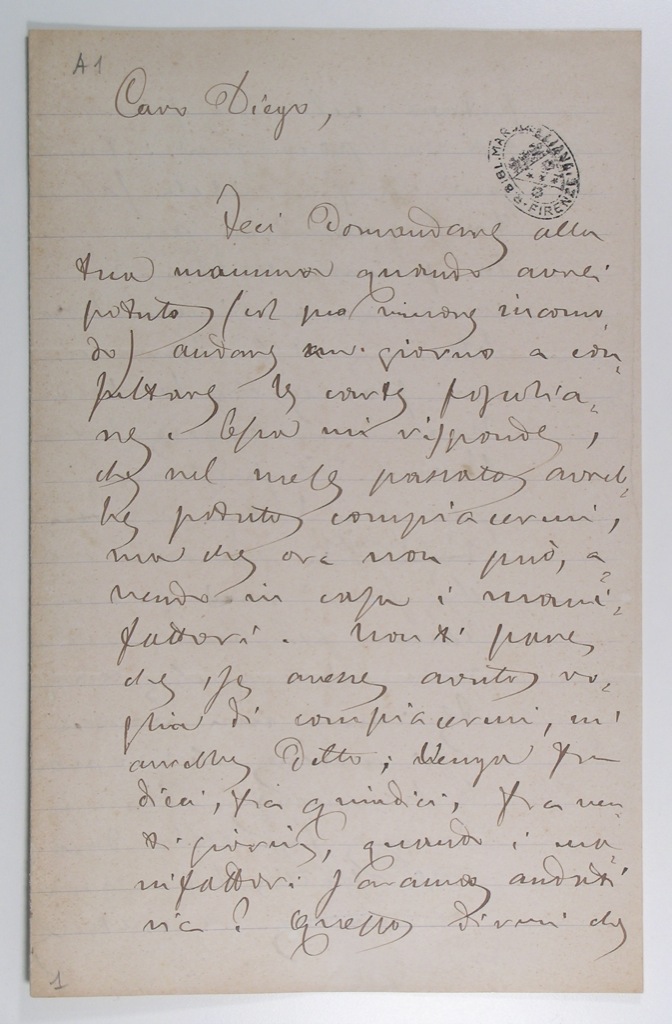 A1
Caro Diego,
BIBL. MARUCELLIANA FIRENZE
Feci domandare alla
tua mamma quando avrei
potuto (col suo minore incomo-
do) andare un giorno a con-
sultare le carte fogolia-
ne. Essa mi risponde,
che nel mese passato avreb-
be potuto compiacermi,
ma che ora non può, a-
vendo in casa i mani-
fattori. Non ti pare
che, se avesse avuto vo-
glia di compiacermi, m'
avrebbe detto; Venga fra
dieci, fra quindici, fra ven-
ti giorni, quando i ma-
nifattori saranno andati
via? Questo dirmi che
1